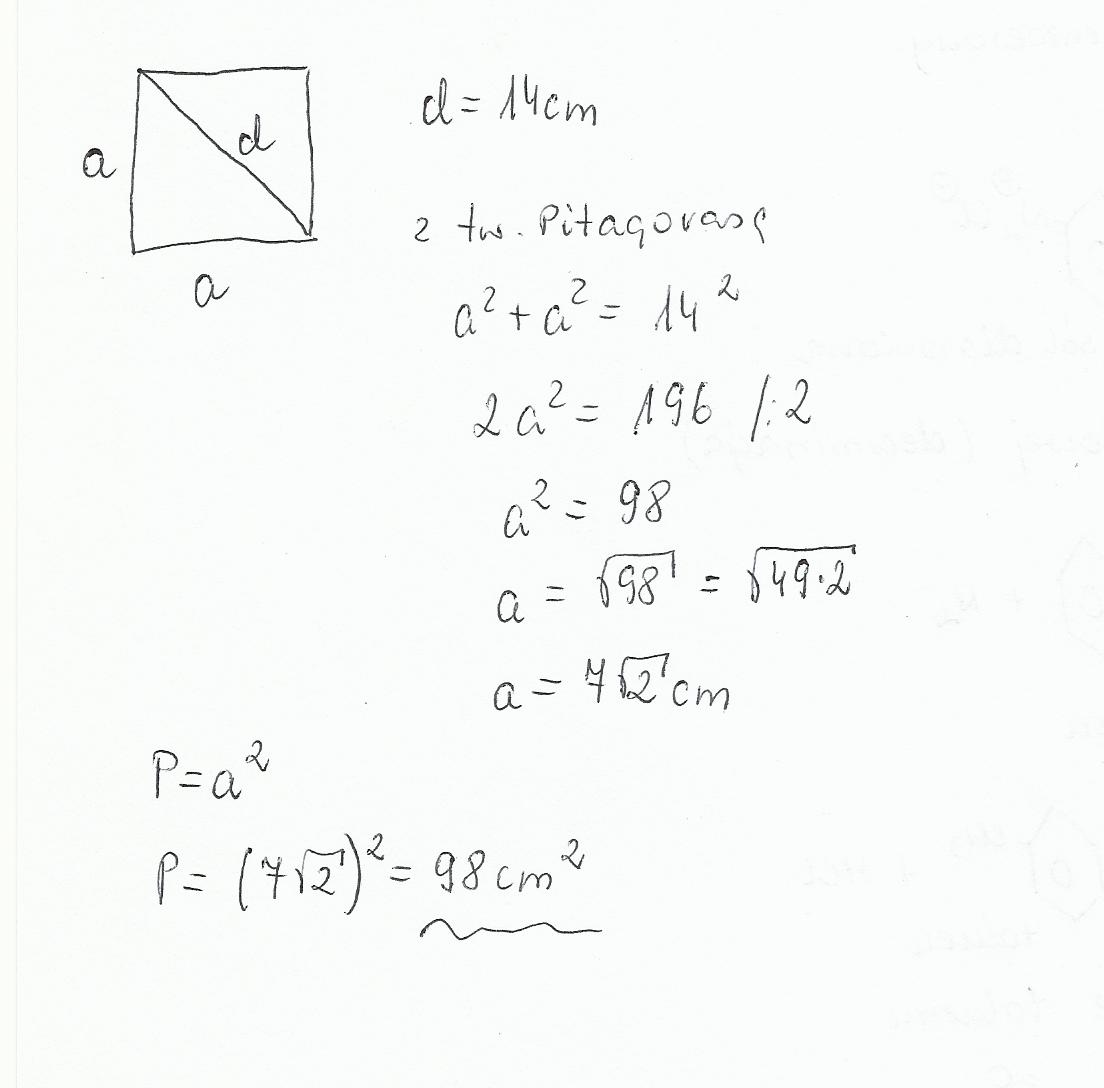 a
d
a
d = 14cm
z tw. Pitagorasa
a² + a² = 14²
2a² = 196 /:2
a² = 98
a = √98 = √49·2
a = 7√2 cm
P = a²
P = (7√2)² = 98 cm²